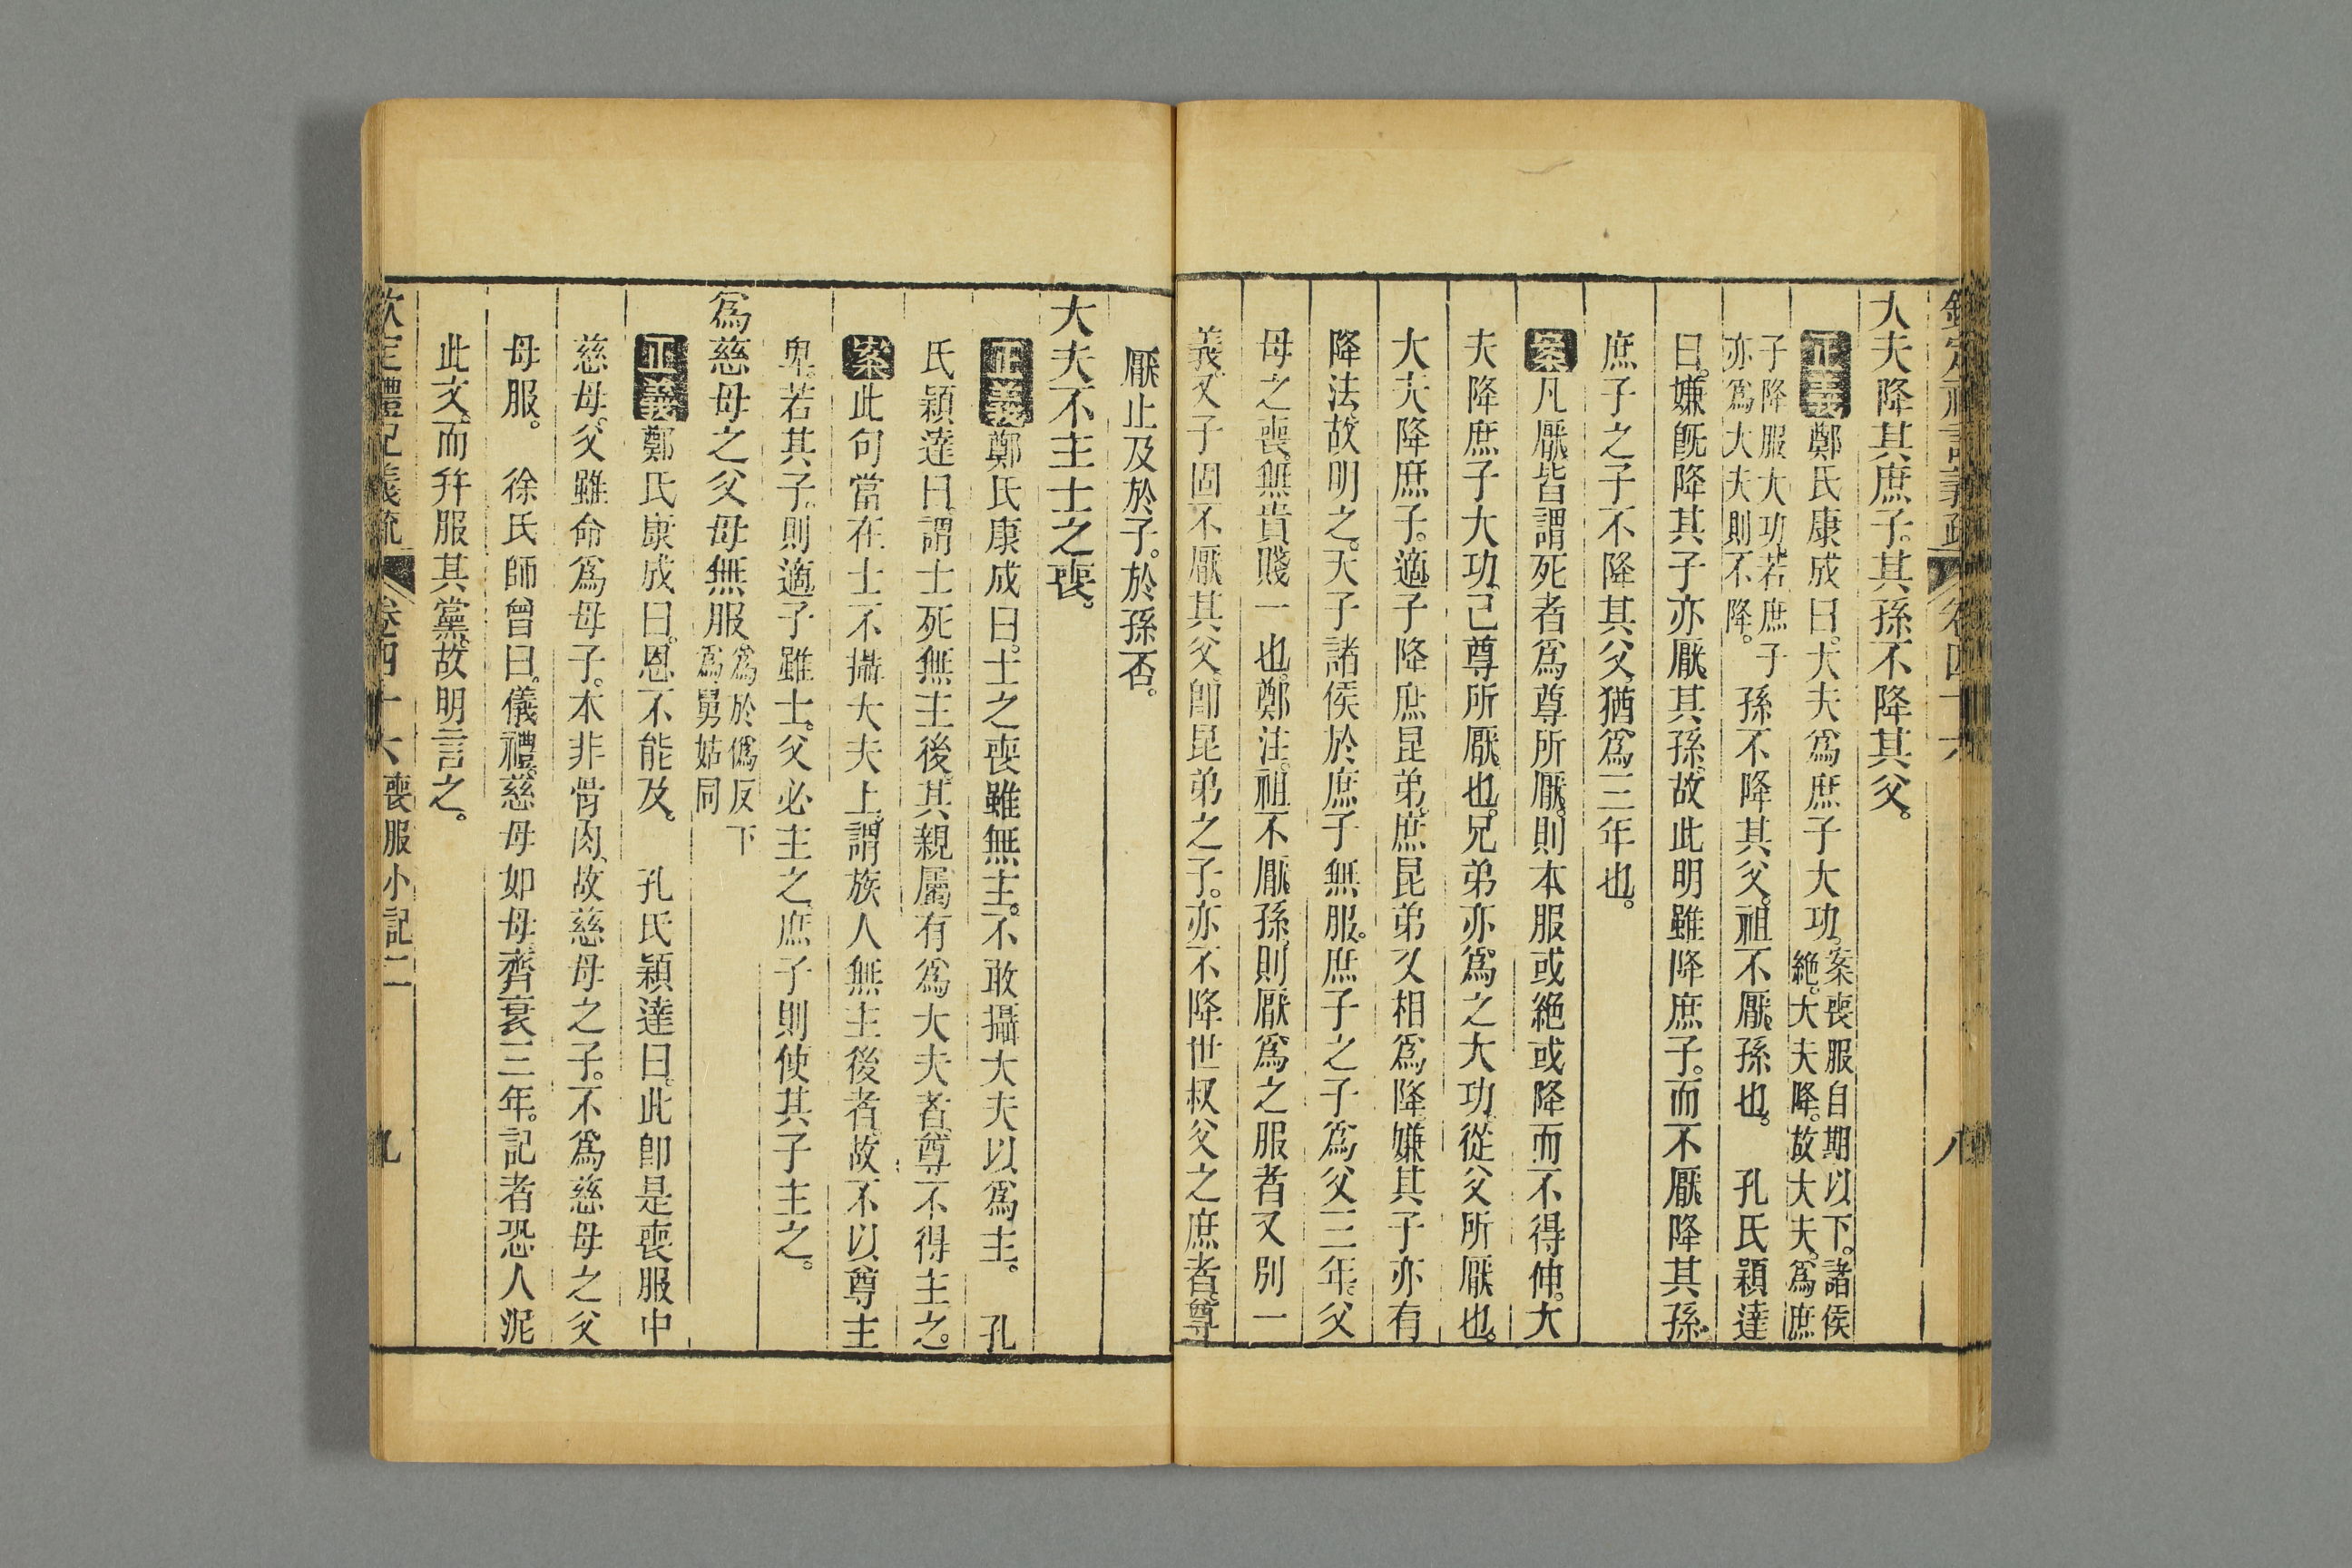 欽定禮記義疏 卷四十六 八
大夫降其庶子。其孫不降其父。
正義鄭氏康成曰。大夫爲庶子大功。案喪服自期以下。諸侯絶。大夫降。故大夫。爲庶
子降服大功。若庶子亦爲大夫則不降。 孫不降其父。祖不厭孫也。 孔氏穎達
曰。嫌旣降其子亦厭其孫。故此明雖降庶子。而不厭降其孫。
庶子之子不降其父。猶爲三年也。
案凡厭。皆謂死者爲尊所厭。厭。則本服或絶或降而不得伸。大
夫降庶子大功。己尊所厭也。兄弟亦爲之大功。從父所厭也。
大夫降庶子。適子降庶昆弟。庶昆弟又相爲降。嫌其子亦有
降法。故明之。天子諸侯於庶子無服。庶子之子爲父三年。父
母之喪。無貴賤一也。鄭注。祖不厭孫。則厭爲之服者又別一
義。又子固不厭其父。卽昆弟之子。亦不降世叔父之庶者。尊
厭止及於子。於孫否。
大夫不主士之喪。
正義鄭氏康成曰。士之喪雖無主。不敢攝大夫以爲主。 孔
氏穎達曰。謂士死無主後。其親屬有爲大夫者。尊不得主之。
案此句當在士不攝大夫上。謂族人無主後者。故不以尊主
卑。若其子。則適子雖士。父必主之。庶子則使其子主之。
爲慈母之父母無服爲於僞反下爲舅姑同
正義鄭氏康成曰。恩不能及。 孔氏穎達曰。此卽是喪服中
慈母。父雖命爲母子。本非骨肉。故慈母之子。不爲慈母之父
母服。 徐氏師曾曰。儀禮。慈母如母。齊衰三年。記者恐人泥
此文。而幷服其黨。故明言之。
欽定禮記義疏 卷四十六 喪服小記二 九